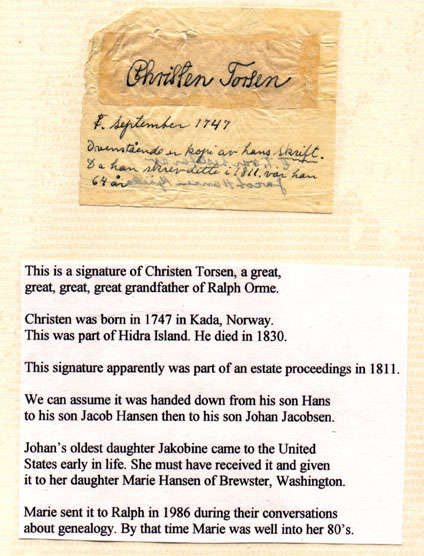 Christen Torsen
F. September 1747
Ovenstående er kopi av hans skrift.
Da han skrev dette i 1811, var han
64 år
This is a signature of Christen Torsen, a great,
great, great, great grandfather of Ralph Orme.
Christen was born in 1747 in Kada, Norway.
This was part of Hidra Island. He died in 1830.
This signature apparently was part of an estate proceedings in 1811.
We can assume it was handed down from his son Hans
to his son Jacob Hansen then to his son Johan Jacobsen.
Johan's oldest daughter Jakobine came to the United
States early in life. She must have received it and given
it to her daughter Marie Hansen of Brewster, Washington.
Marie sent it to Ralph in 1986 during their conversations
about genealogy. By that time Marie was well into her 80's.